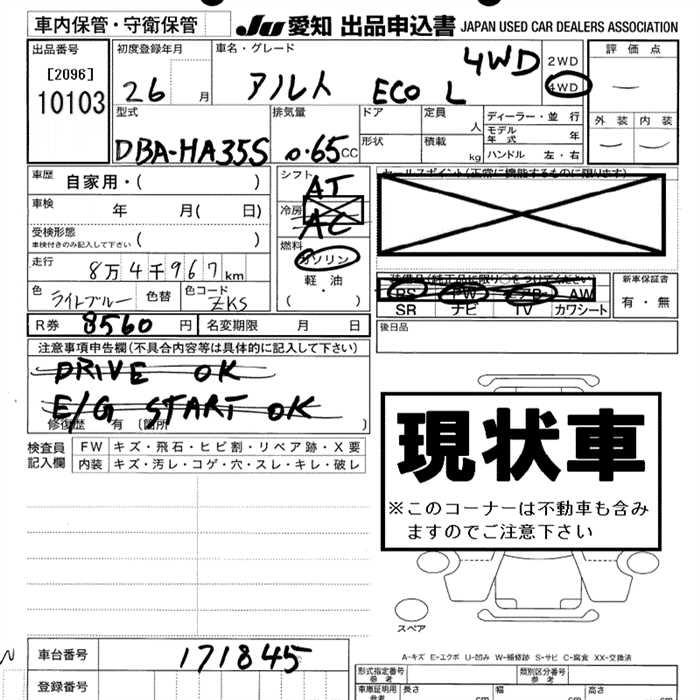 車内保管・守衛保管 JU 愛知 出品申込書 JAPAN USED CAR DEALERS ASSOCIATION
出品番号 初度登録年月 車名・グレード 4WD 2WD 評価点
[2096] 26 月 アルト ECO L 4WD
10103
型式 排気量 ドア 定員 人 ディーラー・並行 外装 内装
DBA-HA35S 0.65CC 形状 積載 kg モデル年式 年
ハンドル 左・右
車歴 自家用・( ) シフト AT セールスポイント(正常に機能するものに限ります)
車検 年 月( 日) 冷房 AC
受検形態 車検付きのみ記入して下さい ( ) 燃料 ガソリン
走行 8万4千967km 軽・油 装備品(純正品に限り○をつけてください) 新車保証書
色 ライトブルー 色替 色コード ZKS ( ・ ) PS PW アルミ AW 有・無
SR ナビ TV カワシート
R券 8560 円 名変期限 月 日 後日品
注意事項申告欄(不具合内容等は具体的に記入して下さい)
DRIVE OK
E/G START OK
修復歴 有 〔箇所 )
検査員記入欄 FW キズ・飛石・ヒビ割・リペア跡・X要
内装 キズ・汚レ・コゲ・穴・スレ・キレ・破レ
現状車
※このコーナーは不動車も含み
ますのでご注意下さい
スペア
A-キズ E-エクボ U-凹み W-補修跡 S-サビ C-腐食 XX-交換済
車台番号 171845 形式指定番号 参考 類別区分番号 参考
登録番号 車庫証明用 参考 長さ cm 幅 cm 高さ cm